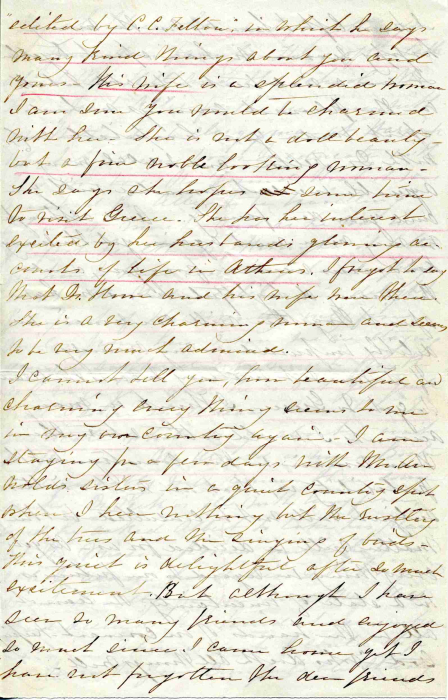 edited by C. C. Felton", in which he says
many kind things about you and
yours. His wife is a splendid woman
I am sure you would be charmed
with her. She is not a doll beauty -
but a fine noble looking woman -
She says she hopes some time
to visit Greece. She has her interest
excited by her husband's glowing ac
counts of life in Athens. I forgot to say
that Dr. Howe and his wife were there
She is a very charming woman and seems
to be very much admired.
I cannot tell you, how beautiful and
charming every thing seems to me
in my own country again. I am
staying for a few days with Mr. Ar
nold's sisters in a quiet country spot
where I hear nothing but the rustling
of the trees and the singing of birds -
This quiet is delightful, after so much
excitement. But although I have
seen so many friends and enjoyed
so much since I came home yet I
have not forgotten the dear friends